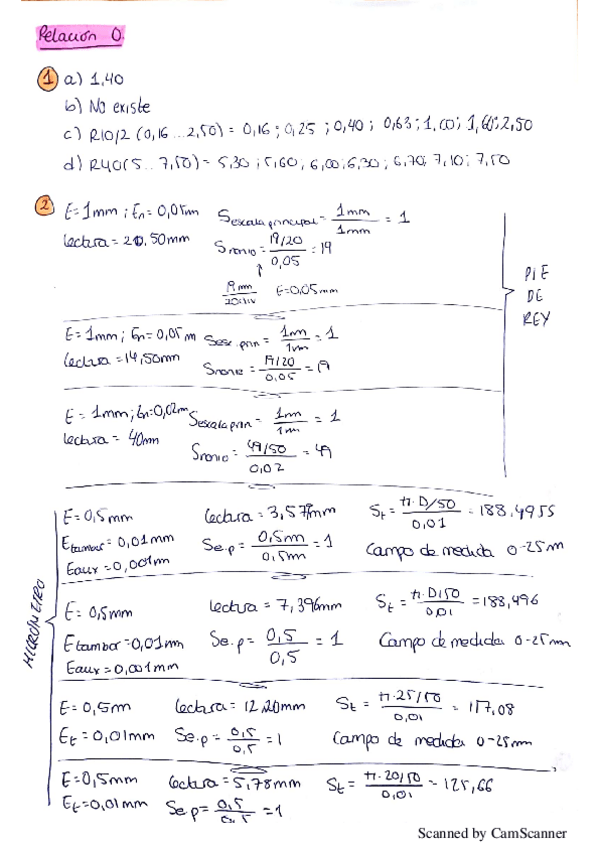 Relación 0.
1 a) 1,40
b) No existe
c) R10/2 (0,16 ... 2,50) = 0,16 ; 0,25 ; 0,40 ; 0,63 ; 1,00 ; 1,60 ; 2,50
d) R40 (5 .. 7,50) = 5,30 ; 5,60 ; 6,00 ; 6,30 ; 6,70 ; 7,10 ; 7,50
2 E = 1mm ; En = 0,05mm Sescala principal = 1mm/1mm = 1
Lectura = 20,50mm Snonio = (19/20)/0,05 = 19
19mm/20div E=0,05mm
PIE
DE
REY
E = 1mm ; En = 0,05m Sesc.prin = 1mm/1mm = 1
Lectura = 14,50mm Snonio = (19/20)/0,05 = 19
E = 1mm ; En=0,02m Sescala prin = 1m/1m = 1
Lectura = 40mm Snonio = (49/50)/0,02 = 49
MICROMETRO
E = 0,5mm Lectura = 3,577mm St = (π.D/50)/0,01 = 188,4955
Etambor = 0,01mm Se.p = 0,5m/0,5m = 1 Campo de medida 0-25m
Eaux = 0,001m
E = 0,5mm Lectura = 7,396mm St = (π.D/50)/0,01 = 188,496
Etambor = 0,01mm Se.p = 0,5/0,5 = 1 Campo de medida 0-25mm
Eaux = 0,001mm
E = 0,5m Lectura = 12,20mm St = (π.25/50)/0,01 = 157,08
Et = 0,01mm Se.p = 0,5/0,5 = 1 Campo de medida 0-25mm
E = 0,5mm Lectura = 5,78mm St = (π.20/50)/0,01 = 125,66
Et = 0,01mm Se.p = 0,5/0,5 = 1
Scanned by CamScanner